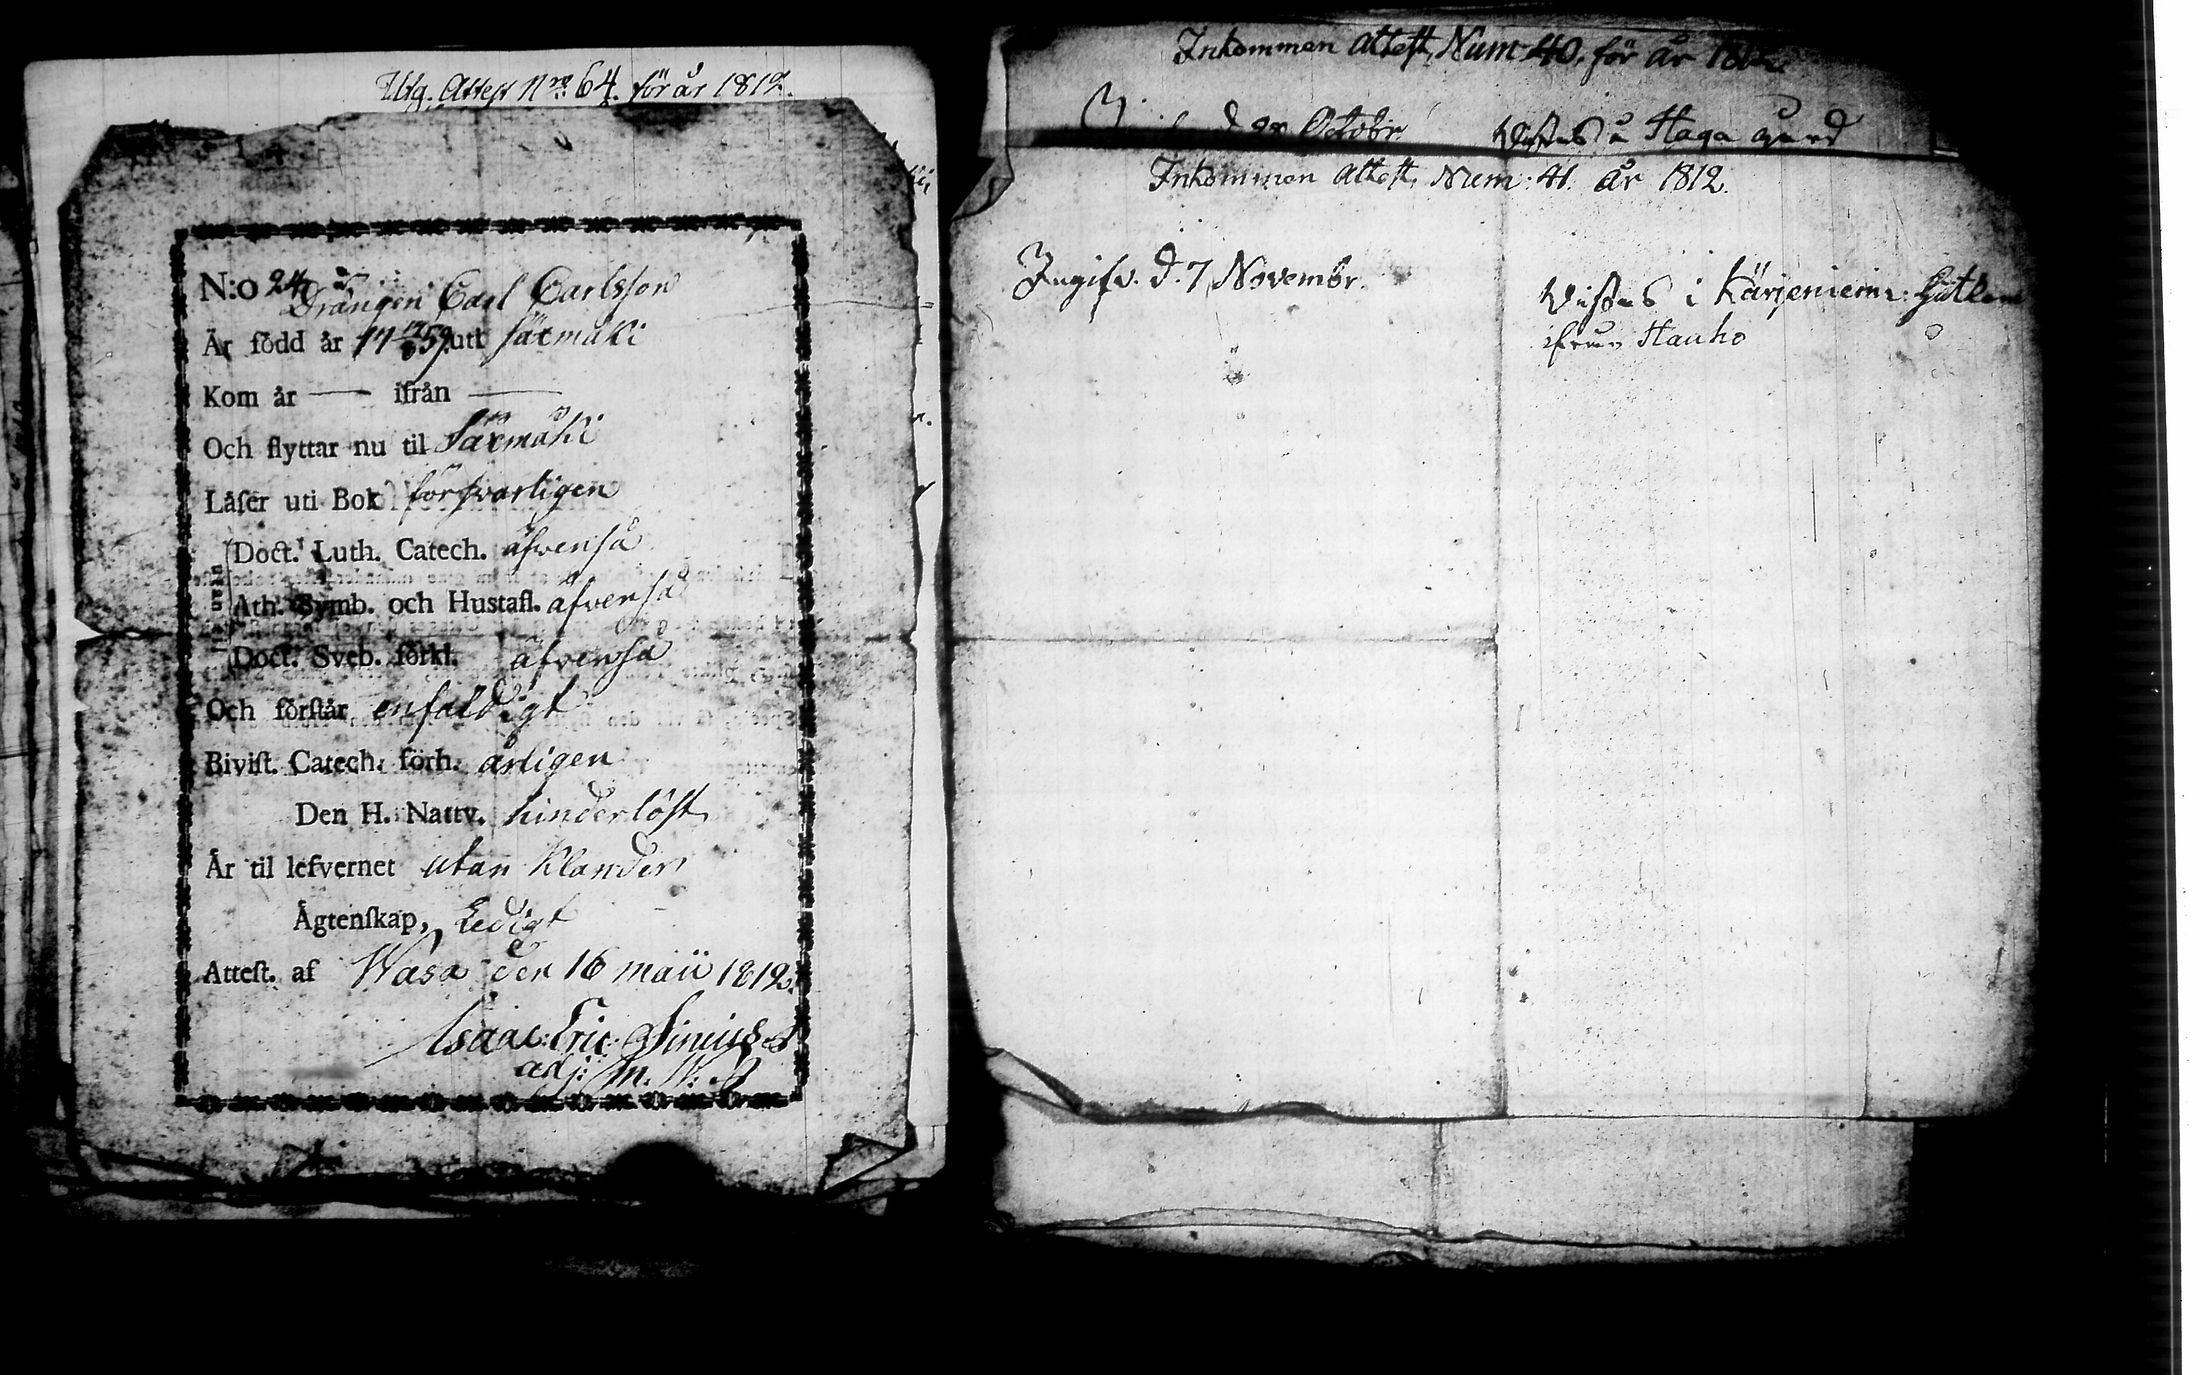 Utg. Attest Nro 64. för år 1812.
N:o 24
Drängen Carl Carlsson
Är född år 17 59 uti Säxmäki
Kom år — ifrån —
Och flyttar nu til Säxmäki
Läſer uti Bok förſvarligen
utan
Doct. Luth. Catech. äfvenſå
Ath. Symb. och Hustafl. äfvenſå
Doct. Sveb. förkl. äfvenſå
Och förſtår enfaldigt
Biviſt. Catech. förh. årligen
Den H. Nattv. hinderlöſt
Är til lefvernet utan klander
Ägtenſkap, Ledigt
Atteſt. af Wasa den 16 maii 1812.
Isaac Eric
adj: m.
Inkommen attest, Num 40, för år
Octobr. Vistas å Haga gård
Inkommen attest, Num: 41. år 1812.
Ingifv. d. 7, Novembr.
Vistas i Kärjeniemi
ifrån Hauho